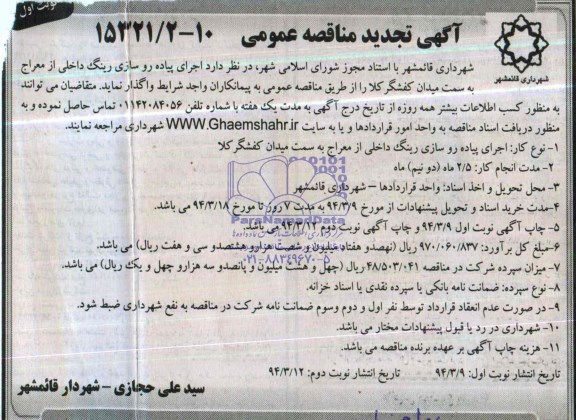 نوبت اول
آگهی تجدید مناقصه عمومی ۱۰-۱۵۳۲۱/۲
شهرداری قائمشهر
شهرداری قائمشهر با استناد مجوز شورای اسلامی شهر، در نظر دارد اجرای پیاده رو سازی رینگ داخلی از معراج
به سمت میدان کفشگرکلا را از طریق مناقصه عمومی به پیمانکاران واجد شرایط واگذار نماید. متقاضیان می توانند
به منظور کسب اطلاعات بیشتر همه روزه از تاریخ درج آگهی به مدت یک هفته با شماره تلفن ۰۱۱۴۲۰۸۴۰۵۶ تماس حاصل نموده و به
منظور دریافت اسناد مناقصه به واحد امور قراردادها و یا به سایت WWW.Ghaemshahr.ir شهرداری مراجعه نمایند.
۱- نوع کار: اجرای پیاده رو سازی رینگ داخلی از معراج به سمت میدان کفشگرکلا
۲-مدت انجام کار: ۲/۵ ماه (دو نیم) ماه
۳- محل تحویل و اخذ اسناد: واحد قراردادها – شهرداری قائمشهر
۴-مدت خرید اسناد و تحویل پیشنهادات از مورخ ۹۴/۳/۹ به مدت ۷ روز تا مورخ ۹۴/۳/۱۸ می باشد.
۵- چاپ آگهی نوبت اول ۹۴/۳/۹ و چاپ آگهی نوبت دوم ۹۴/۳/۱۲ می باشد.
۶-مبلغ کل برآورد: ۹۷۰/۰۶۰/۸۳۷ ریال (نهصدو هفتاد میلیون و شصت هزارو هشتصدو سی و هفت ریال) می باشد.
۷- میزان سپرده شرکت در مناقصه ۴۸/۵۰۳/۰۴۱ ریال (چهل و هشت میلیون و پانصدو سه هزارو چهل و یک ریال) می باشد.
۸- نوع سپرده: ضمانت نامه بانکی یا سپرده نقدی یا اسناد خزانه.
۹- در صورت عدم انعقاد قرارداد توسط نفر اول و دوم وسوم ضمانت نامه شرکت در مناقصه به نفع شهرداری ضبط شود.
۱۰- شهرداری در رد یا قبول پیشنهادات مختار می باشد.
۱۱- هزینه چاپ آگهی بر عهده برنده مناقصه می باشد.
تاریخ انتشار نوبت اول: ۹۴/۳/۹ تاریخ انتشار نوبت دوم: ۹۴/۳/۱۲
سید علی حجازی – شهردار قائمشهر
ParaNamadData
۰۲۱-۸۸۳۴۹۶۷۰-۵